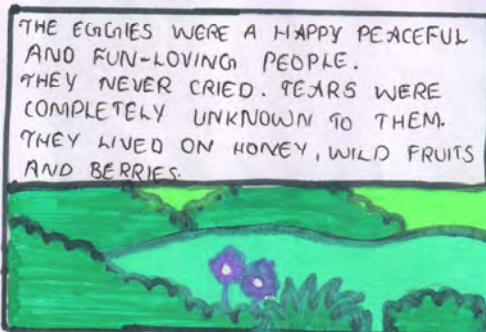 THE EGGIES WERE A HAPPY PEACEFUL
AND FUN-LOVING PEOPLE.
THEY NEVER CRIED. TEARS WERE
COMPLETELY UNKNOWN TO THEM.
THEY LIVED ON HONEY, WILD FRUITS
AND BERRIES.